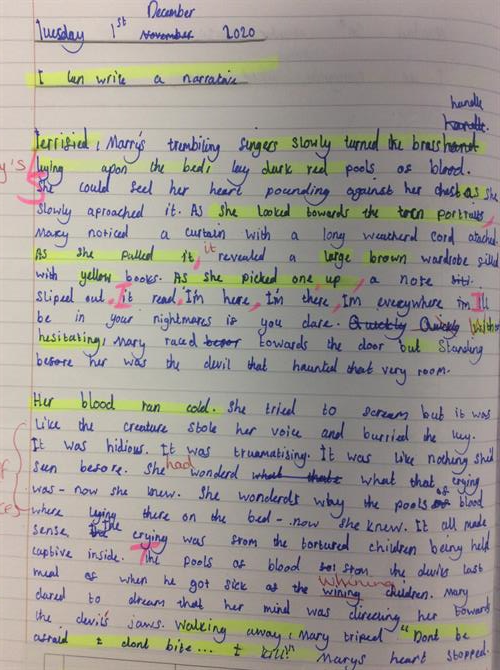 December
Tuesday 1st November 2020
I can write a narrative
handle
Terrified, Marry's trembiling fingers slowly turned the brass
laying upon the bed, lay dark red pools of blood.
She could feel her heart pounding against her chest as she
slowly aproached it. As she looked towards the torn portraits,
Mary noticed a curtain with a long weatherd cord atached
As she pulled it, it revealed a large brown wardrobe filled
with yellow books. As she picked one up, a note
sliped out. It read, I'm here, I'm there, I'm everywhere ill
be in your nightmares if you dare. Quickly Quickly
hesitating, Mary raced towards the door but Standing
before her was the devil that haunted that very room.
Her blood ran cold. She tried to scream but it was
Like the creature stole her voice and burried the key.
It was hidious. It was truamatising. It was like nothing shed
seen before. She had wonderd what that crying
was - now she knew. She wonderds why the pools of blood
where laying there on the bed - now she knew. It all made
sense The crying was from the tortured children being held
captive inside. The pools of blood from the devils last
meal of when he got sick of the whining wining children. Mary
dared to dream that her mind was directing her towards
the devil's jaws. Walking away, Mary triped "Dont be
afraid I dont bite... I kill!" Marys heart stopped.